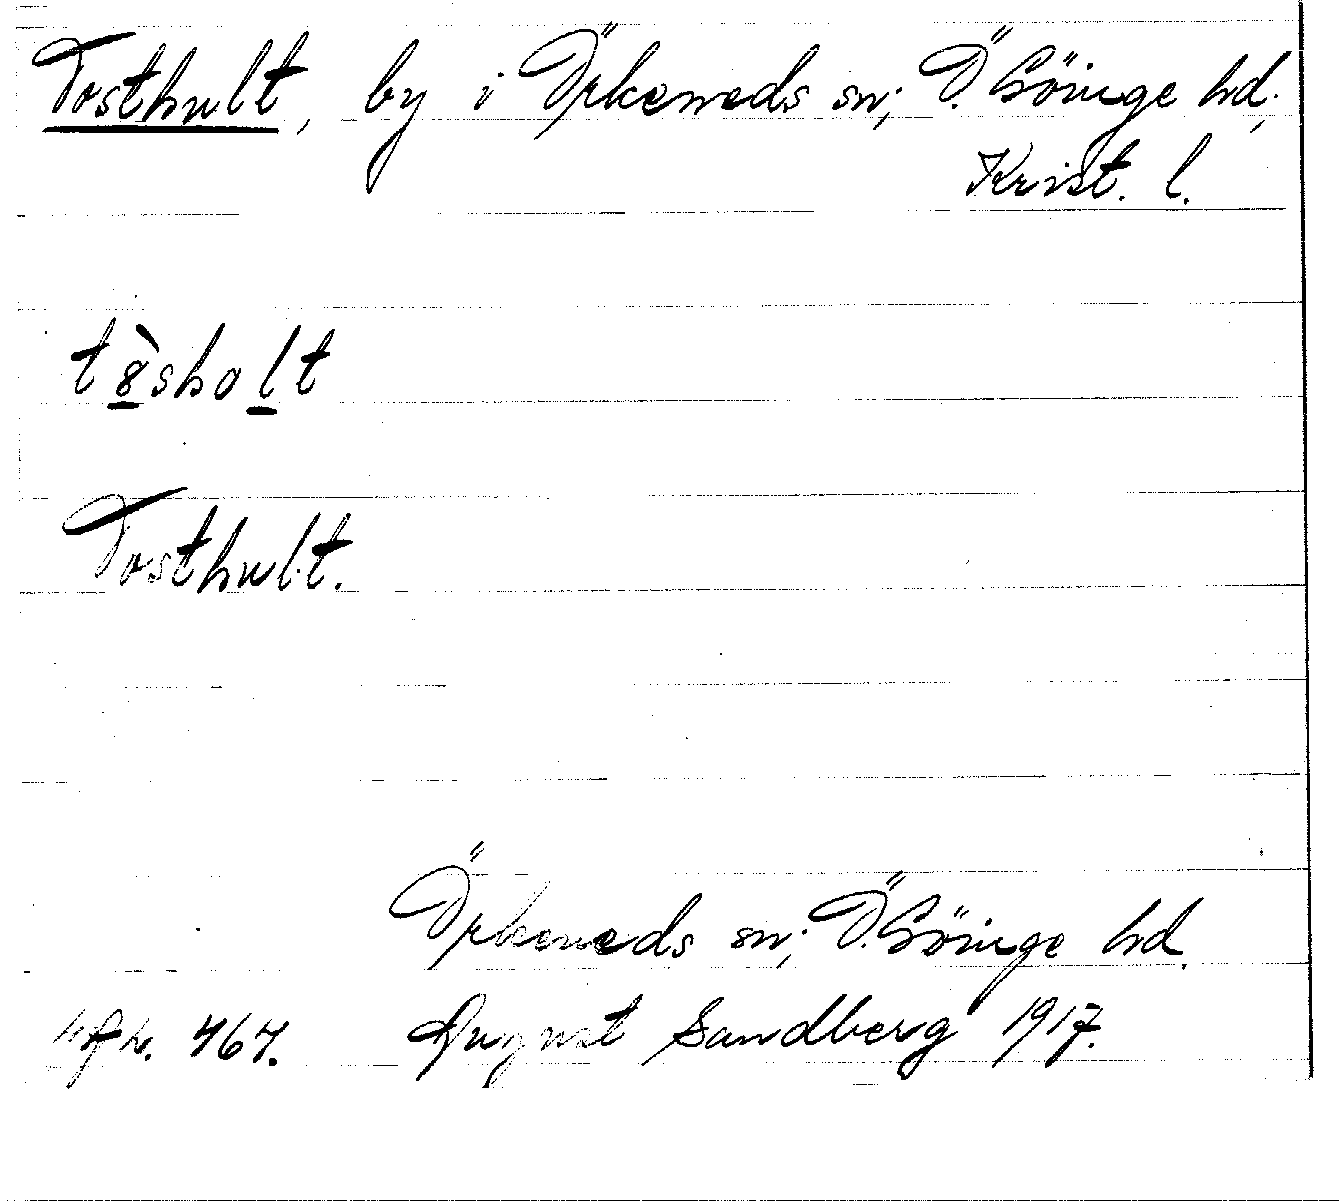 Tosthult, by i Örkeneds sn; Ö. Göinge hd,
Krist. l.
t8̀sholt
Tosthult.
Örkeneds sn; Ö. Göinge hd.
August Sandberg 1917.